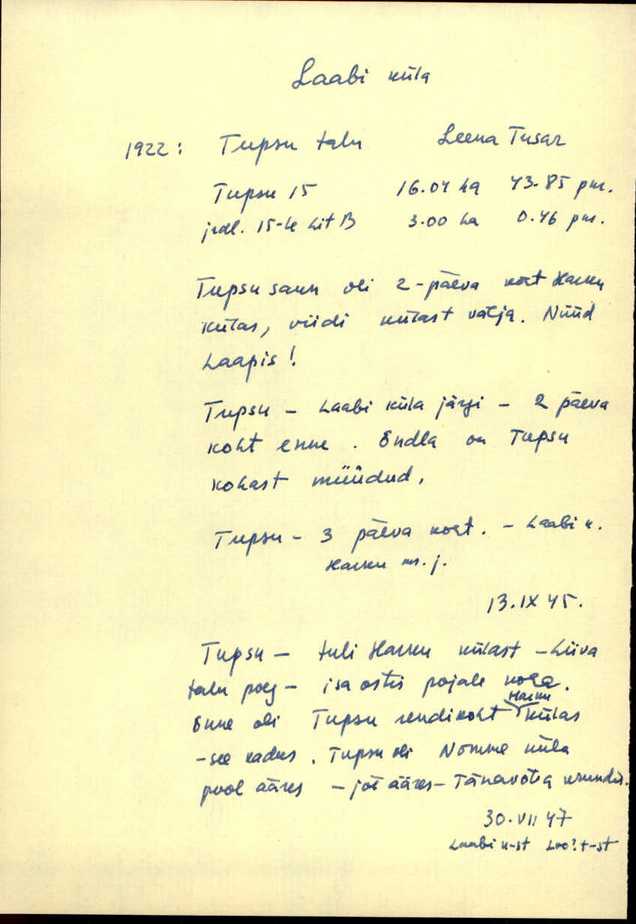 Laabi küla
1922: Tupsu talu Leena Tusar
Tupsu 15 16.04 ha 43.85 pm.
jrdl. 15-le Lit B 3.00 ha 0.46 pm.
Tupsu saun oli 2-päeva koht Harku
külas, viidi külast välja. Nüüd
Laapis!
Tupsu – Laabi küla järgi – 2 päeva
koht enne. Endla on Tupsu
kohast müüdud.
Tupsu – 3 päeva koht. – Laabi k.
Harku m. j.
13.IX 45.
Tupsu – tuli Harku külast – Liiva
talu poeg – isa ostis pojale koha.
Enne oli Tupsu rendikoht Harku külas
– see kadus. Tupsu oli Nõmme küla
pool ääres – jõe ääres – Tänavõtva
30.VII 47
Laabi k-st